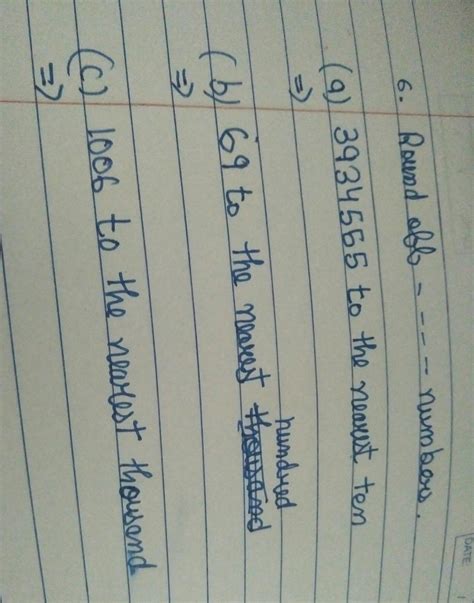 DATE
6. Round off - - - - numbers.
(a) 3934565 to the nearest ten
⇒
hundred
(b) 69 to the nearest thousand
⇒
(c) 1006 to the nearest thousand
⇒